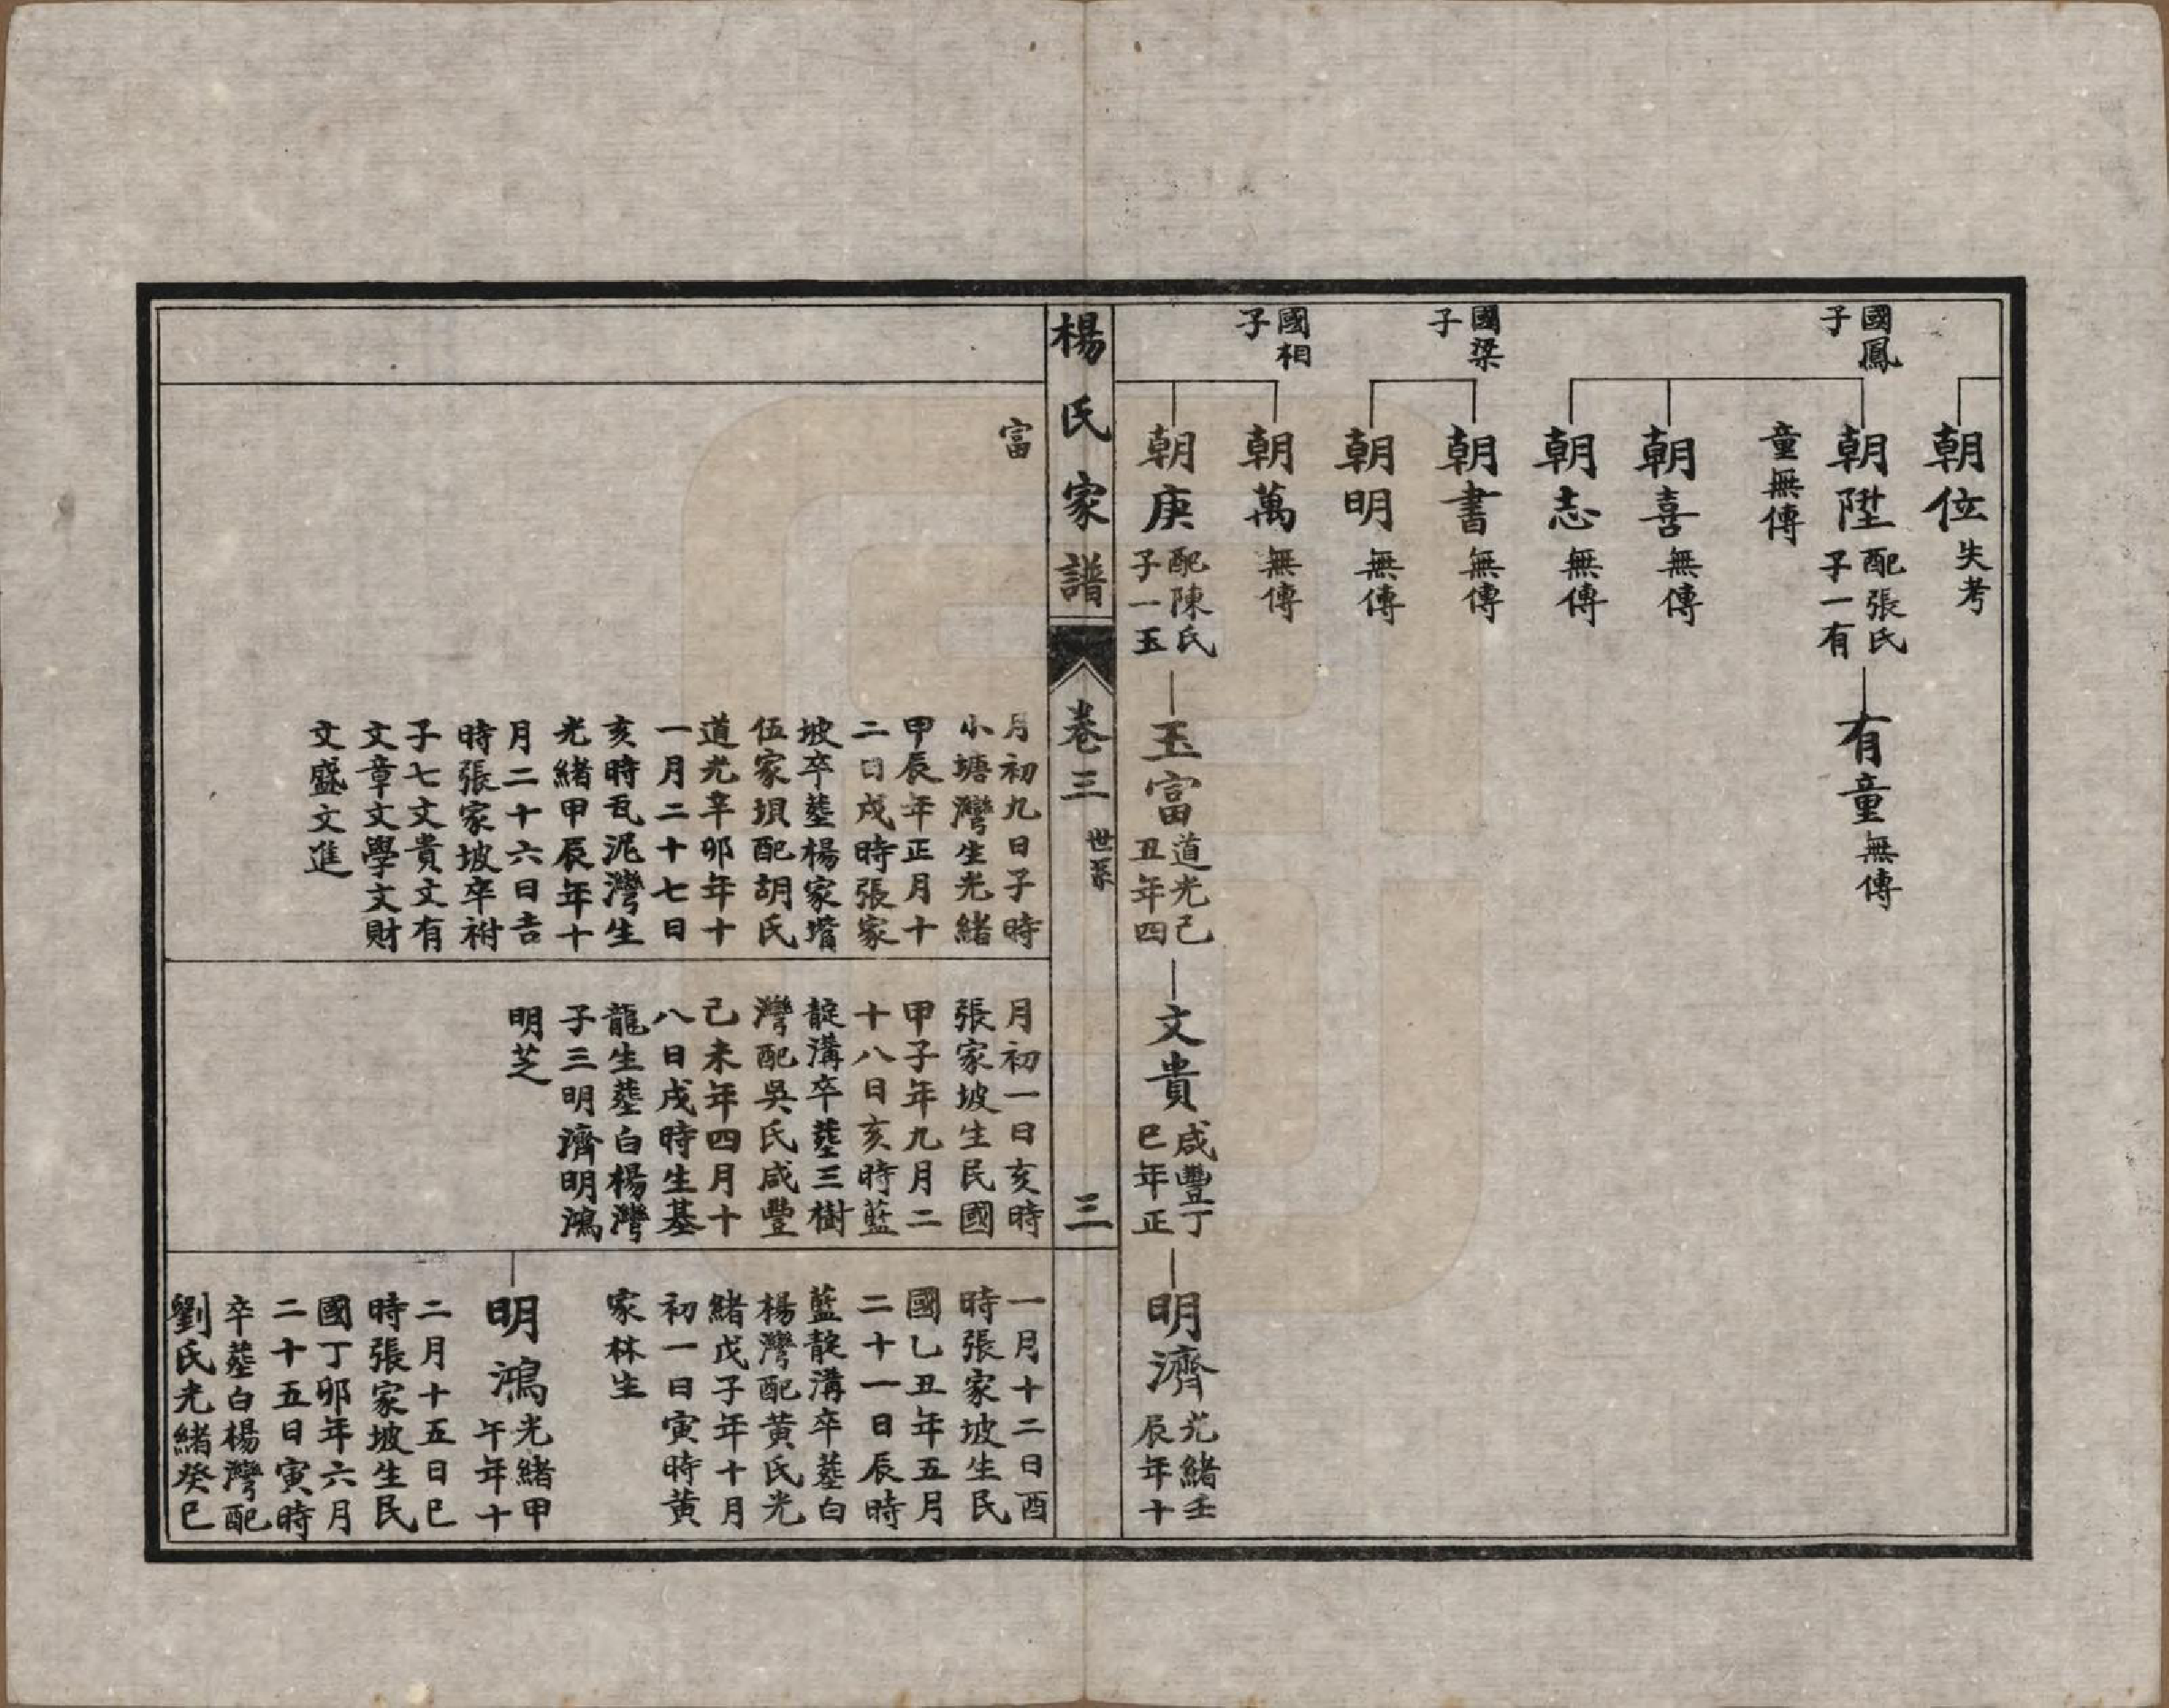 朝位 失考
國鳳
子
朝陞 配張氏
子一有
童無傳
有童 無傳
朝喜 無傳
朝志 無傳
國梁
子
朝書 無傳
朝明 無傳
國相
子
朝萬 無傳
朝庚 配陳氏
子一玉
玉富 道光己
丑年四
文貴 咸豐丁
巳年正
明濟 光緒壬
辰年十
楊氏家譜 卷三 世系 三
富
月初九日子時
小塘灣生光緒
甲辰年正月十
二日戌時張家
坡卒塟楊家嘴
伍家垻配胡氏
道光辛卯年十
一月二十七日
亥時瓦泥灣生
光緒甲辰年十
月二十六日吉
時張家坡卒祔
子七文貴文有
文章文學文財
文盛文進
月初一日亥時
張家坡生民國
甲子年九月二
十八日亥時藍
靛溝卒塟三樹
灣配吳氏咸豐
己未年四月十
八日戌時生基
龍生塟白楊灣
子三明濟明鴻
明芝
一月十二日酉
時張家坡生民
國乙丑年五月
二十一日辰時
藍靛溝卒塟白
楊灣配黃氏光
緒戊子年十月
初一日寅時黃
家林生
明鴻 光緒甲
午年十
二月十五日巳
時張家坡生民
國丁卯年六月
二十五日寅時
卒塟白楊灣配
劉氏光緒癸巳